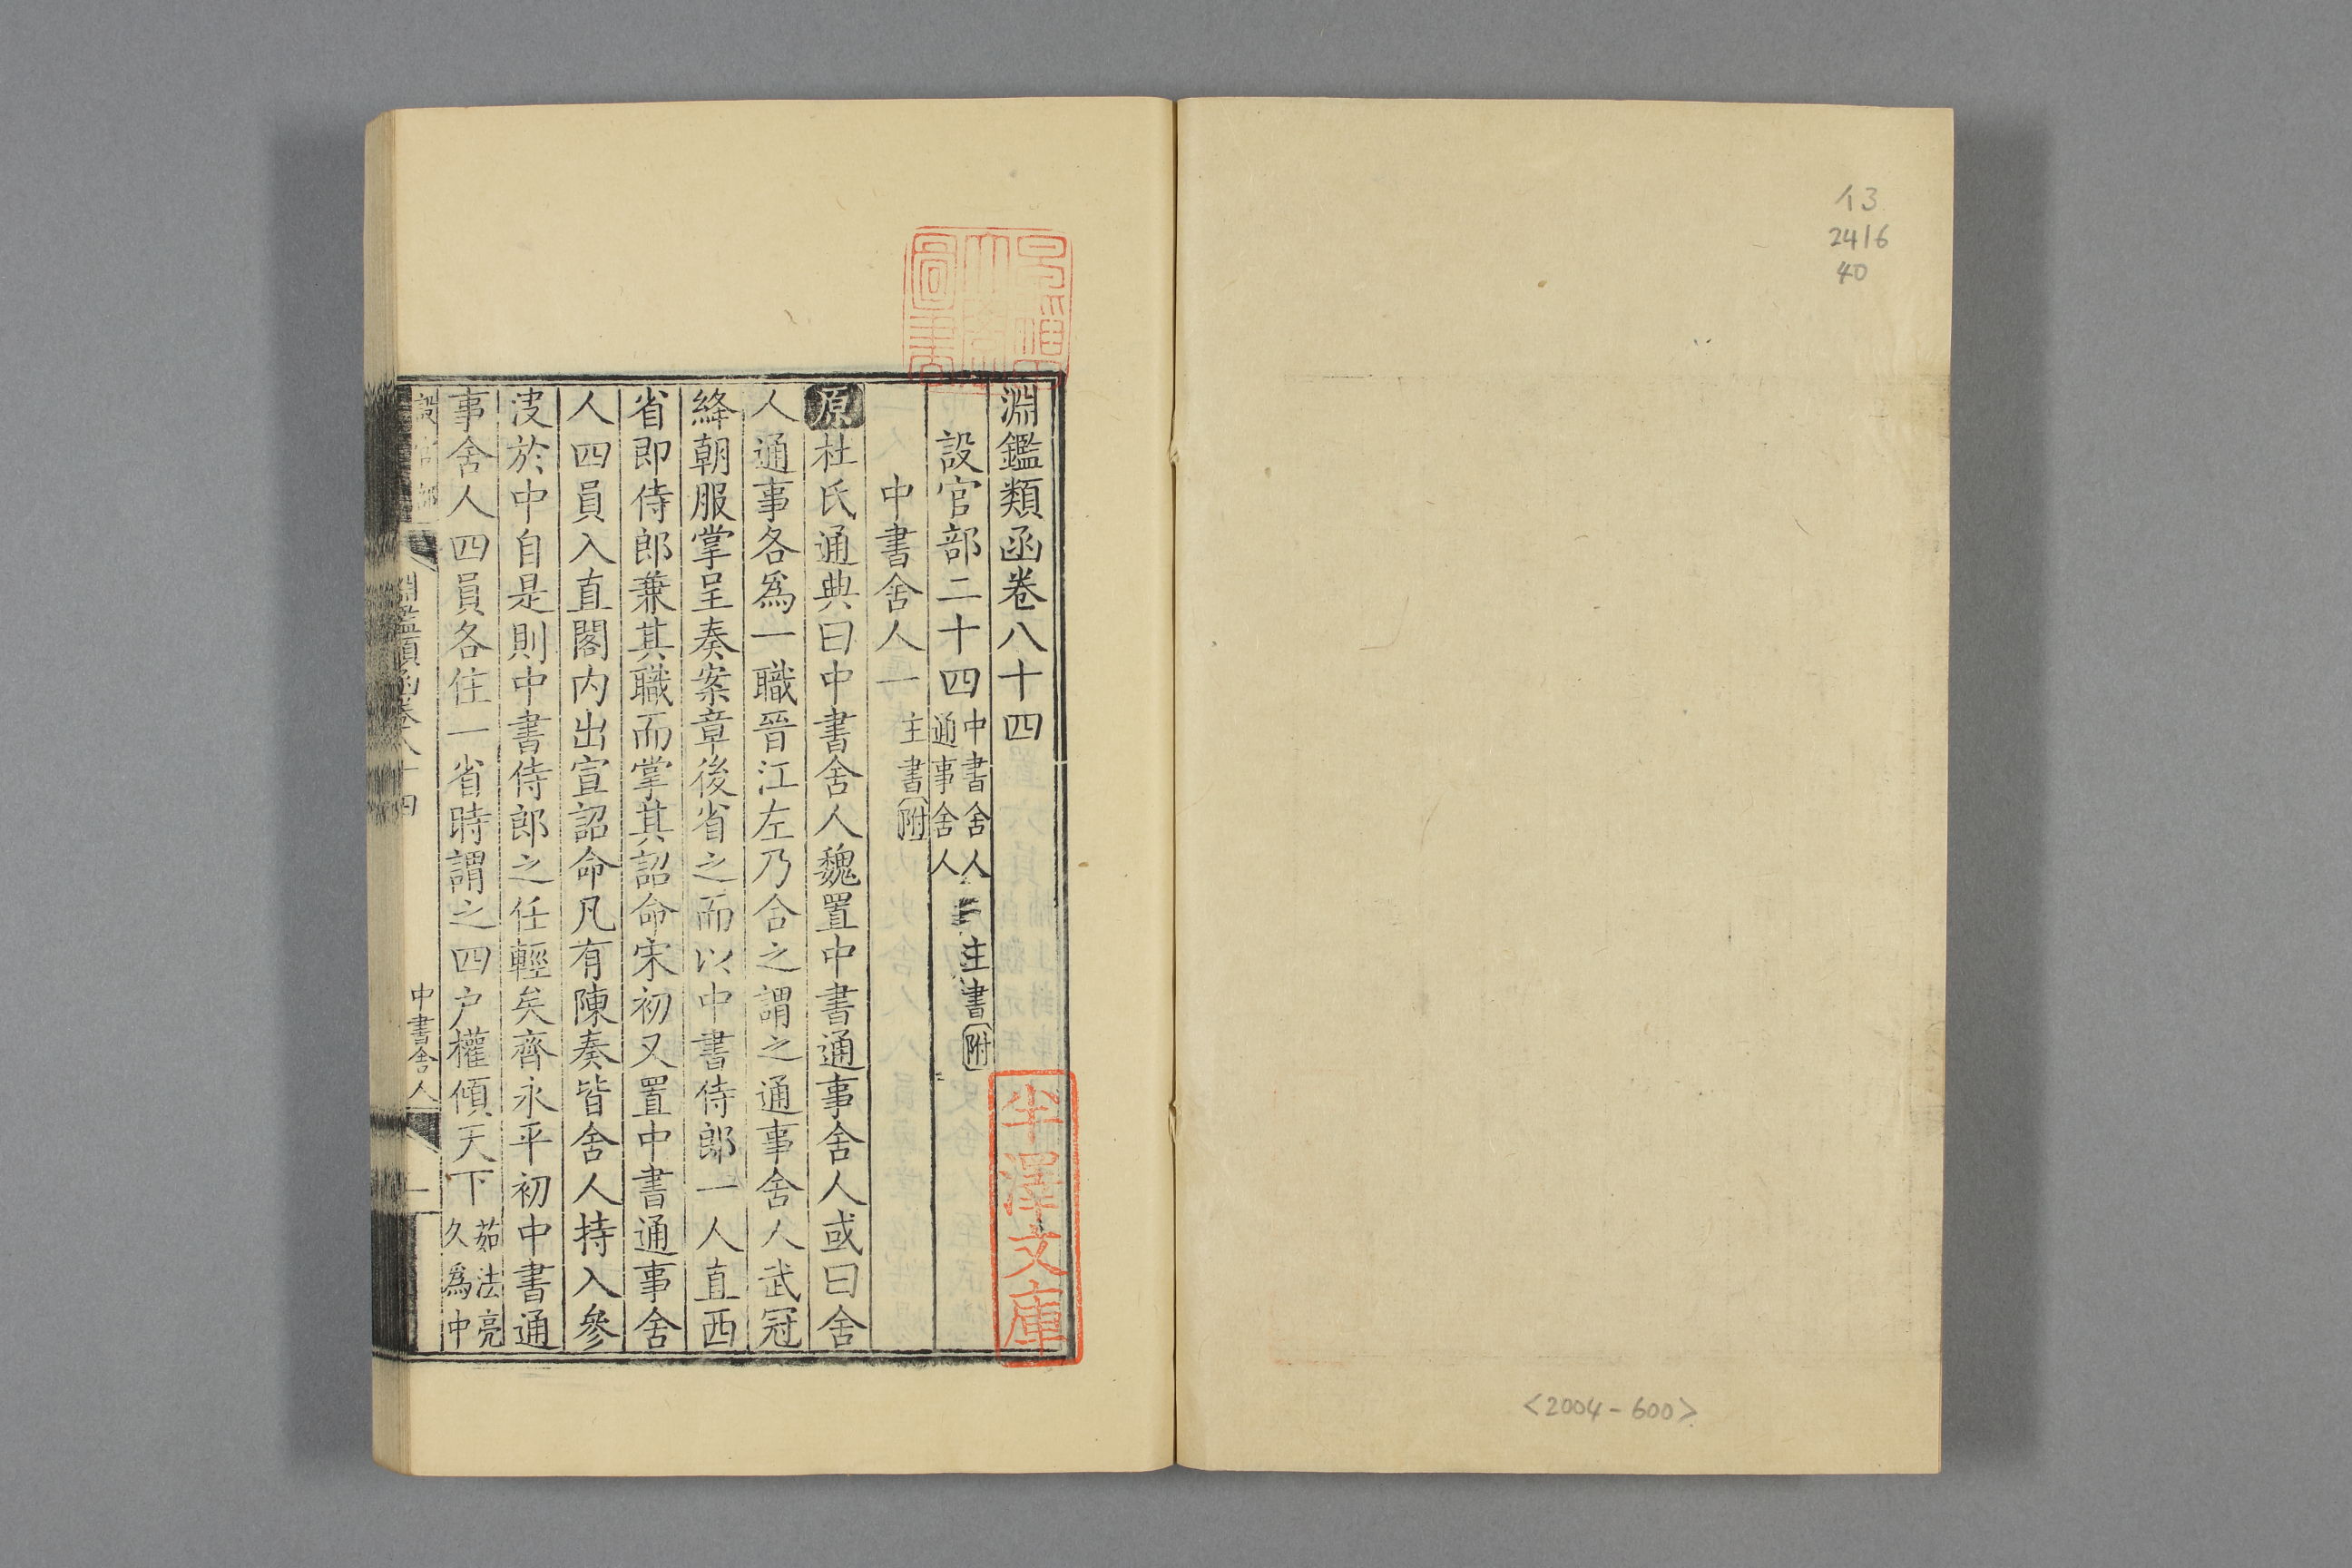 13
2416
40
<2004-600>
淵鑑類函卷八十四
設官部二十四
中書舍人 主書附
通事舍人
中書舍人一
主書附
原杜氏通典曰中書舍人魏置中書通事舍人或曰舍
人通事各爲一職晉江左乃合之謂之通事舍人武冠
絳朝服掌呈奏案章後省之而以中書侍郎一人直西
省即侍郎兼其職而掌其詔命宋初又置中書通事舍
人四員入直閤内出宣詔命凡有陳奏皆舍人持入參
決於中自是則中書侍郎之任輕矣齊永平初中書通
事舍人四員各住一省時謂之四户權傾天下茹法亮
久爲中
設官部
淵鑑類函卷八十四
中書舍人
一
圖書
半澤文庫